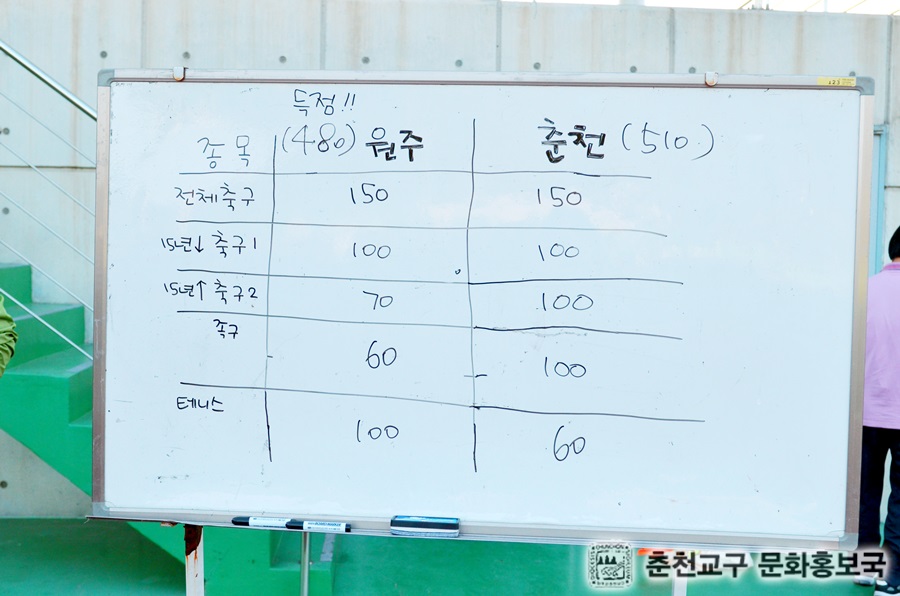 득점!!
종목 (480) 원주 춘천 (510)
전체축구 150 150
15년↓ 축구1 100 100
15년↑ 축구2 70 100
족구 60 100
테니스 100 60
춘천교구 문화홍보국